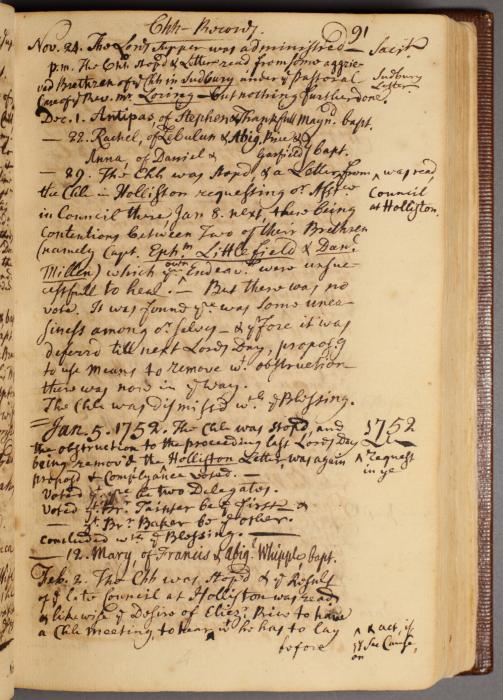 Chh- Records. 91
Nov. 24. The Lords Supper was administred — Sacrt.
p.m. The Chh stop'd & Letter read from some aggrie-
ved Brethren of ye Chh in Sudbury under ye pastoral
Care of ye Revd. Mr. Loring — but nothing further done.
Sudbury
Letter.
Dec. 1. Antipas, of Stephen & Thankfull Maynd. bapt.
— 22. Rachel, of Zebulun & Abig. Rice &
Anna, of Daniel & Garfield } bapt.
— 29. The Chh was stop'd & a Letter from ^ was read
the Chh in Holliston requesting or. Assce
Council
at Holliston.
in Council there Jan 8. next, there being
Contentions between Two of their Brethren
(namely Capt. Ephm. Littlefield & Danl.
Millen) which yr own Endeavrs. were unsuc-
cessfull to heal. — But there was no
vote. It was found yre was some unea-
siness among or. selves — & yrfore it was
deferr'd till next Lords Day, proposg
to use means to remove wt. obstruction
there was now in ye way.
The Chh was dismiss'd wth ye Blessing.
= Jan. 5. 1752. The Chh was stop'd, and 1752
the obstruction to the proceeding last Lords Day
being remov'd the Holliston Letter, was again ^ request
in ye
propos'd & Complyance voted.
Voted yt yre be two Delegates.
Voted yt Br. Tainter be ye first — &
— yt Br. Baker be ye other.
concluded wth ye Blessing. —
— 12. Mary, of Francis & Abig. Whipple, bapt.
Feb. 2. The Chh was stop'd & ye Result
of ye late Council at Holliston was read
as likewise ye Desire of Eliezr. Rice to have
a Chh meeting to hear ^ wt he has to lay
before
^ & act, if
yy See Cause,
on